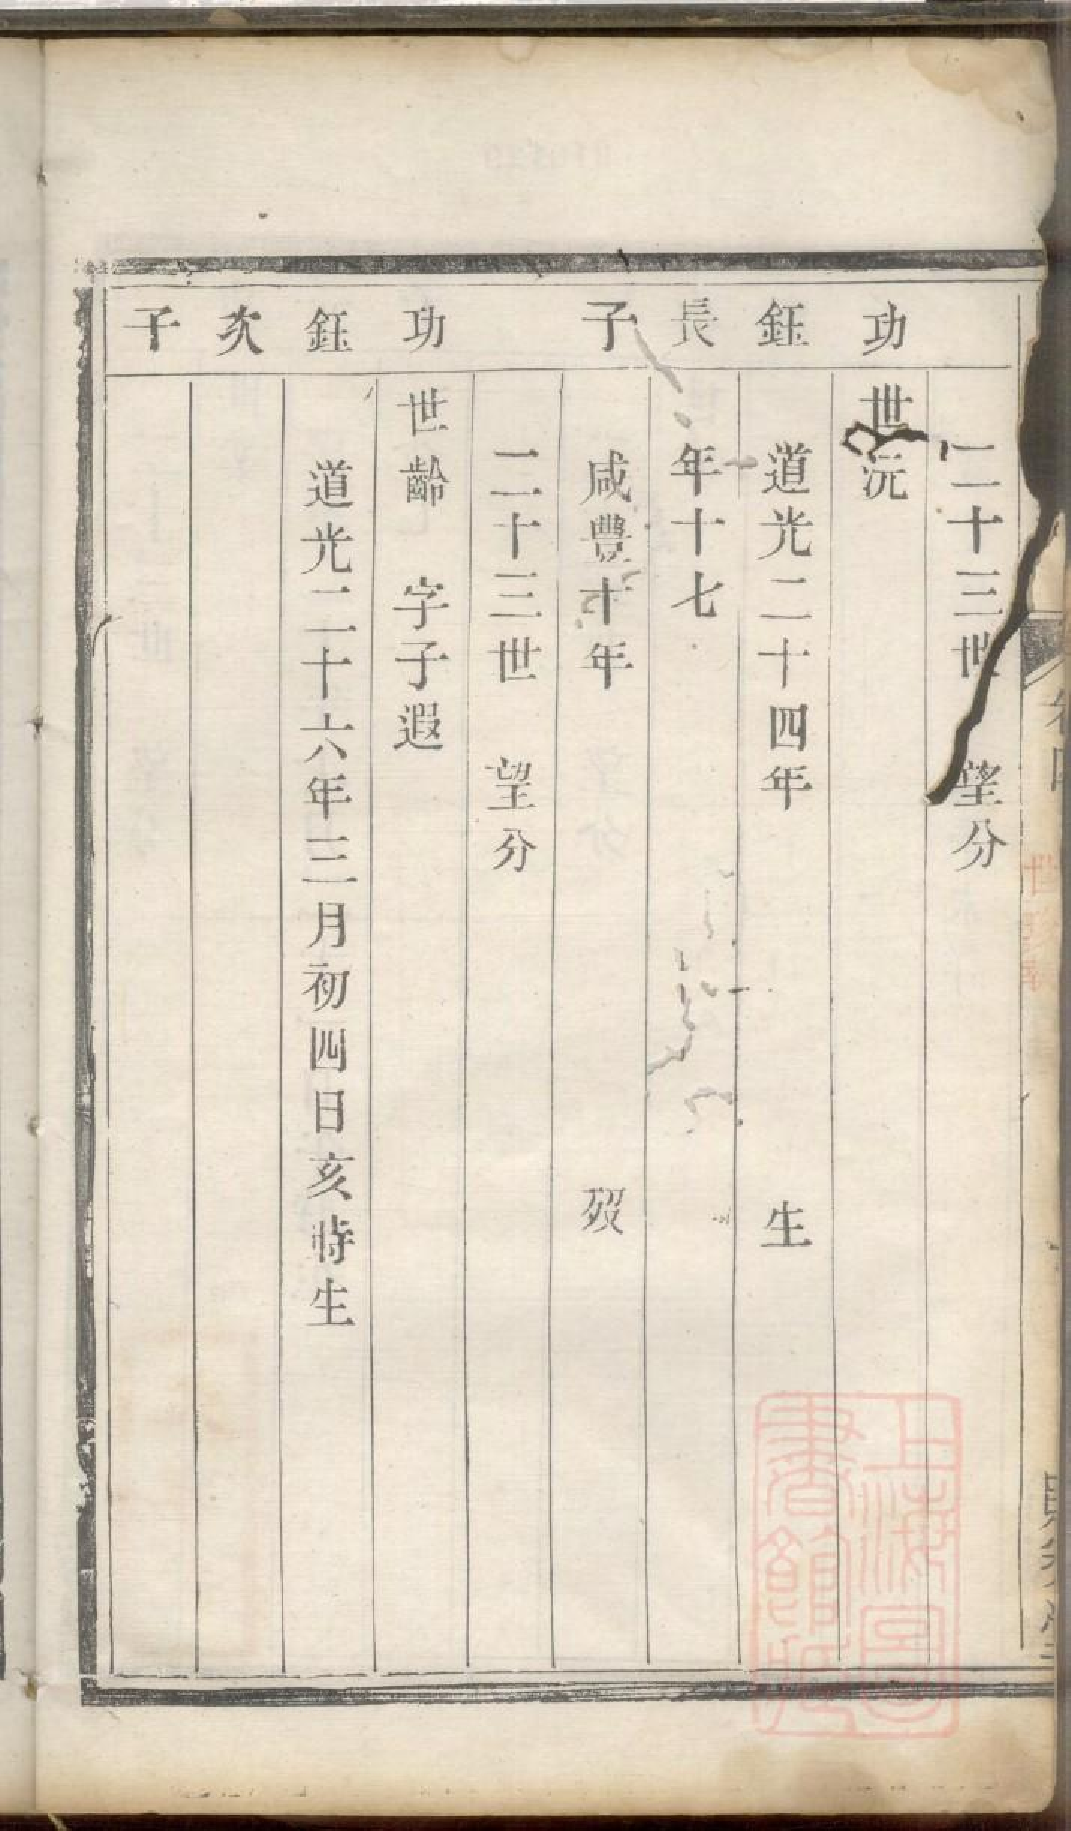 二十三世 望分
功 世沅
鈺 道光二十四年 生
長 年十七
子 咸豐十年 歿
二十三世 望分
功 世齡 字子遐
鈺 道光二十六年三月初四日亥時生
次
子
上海圖
書館藏